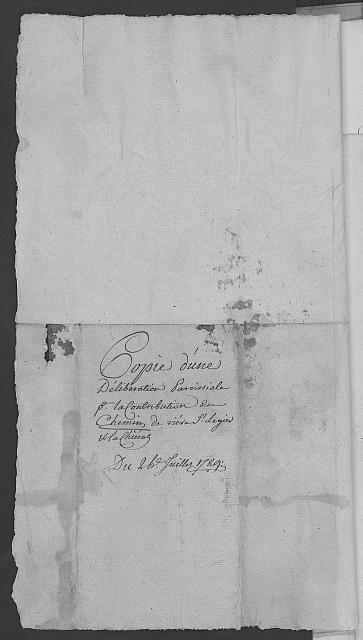 Copie d'une
Déliberation Paroissiale
p. la Contribution du
Chemin de rière St Legier
& la Chiésaz
Du 26e Juillet 1789.